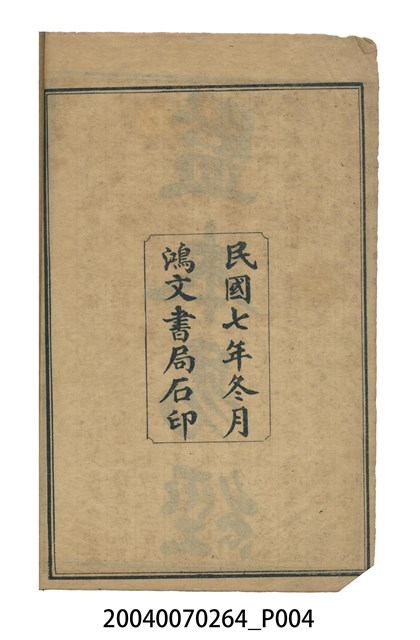 民國七年冬月
鴻文書局石印
20040070264_P004